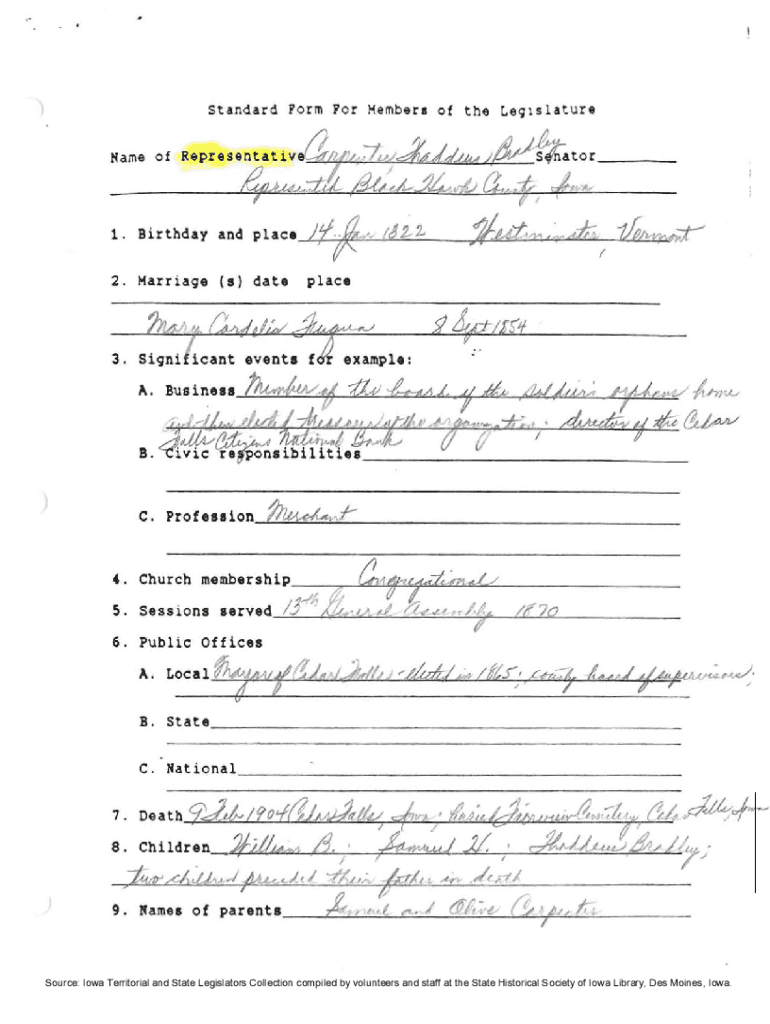 Standard Form For Members of the Legislature
Name of Representative Carpenter, Thaddeus Bradley Senator
Represented Black Hawk County, Iowa
1. Birthday and place 14 Jan 1822 Westminster, Vermont
2. Marriage (s) date place
Mary Cordelia Fuqua 8 Sept 1854
3. Significant events for example:
A. Business Member of the board of the soldiers orphans home
and then elected treasurer of the organization; director of the Cedar
Falls Citizens National Bank
B. Civic responsibilities
C. Profession Merchant
4. Church membership Congregational
5. Sessions served 13th General Assembly 1870
6. Public Offices
A. Local Mayor of Cedar Falls - elected in 1865; county board of supervisors;
B. State
C. National
7. Death 9 Feb 1904 Cedar Falls, Iowa; buried Fairview Cemetery, Cedar Falls, Iowa
8. Children William B.; Samuel H.; Thaddeus Bradley;
two children preceded their father in death
9. Names of parents Samuel and Olive Carpenter
Source: Iowa Territorial and State Legislators Collection compiled by volunteers and staff at the State Historical Society of Iowa Library, Des Moines, Iowa.